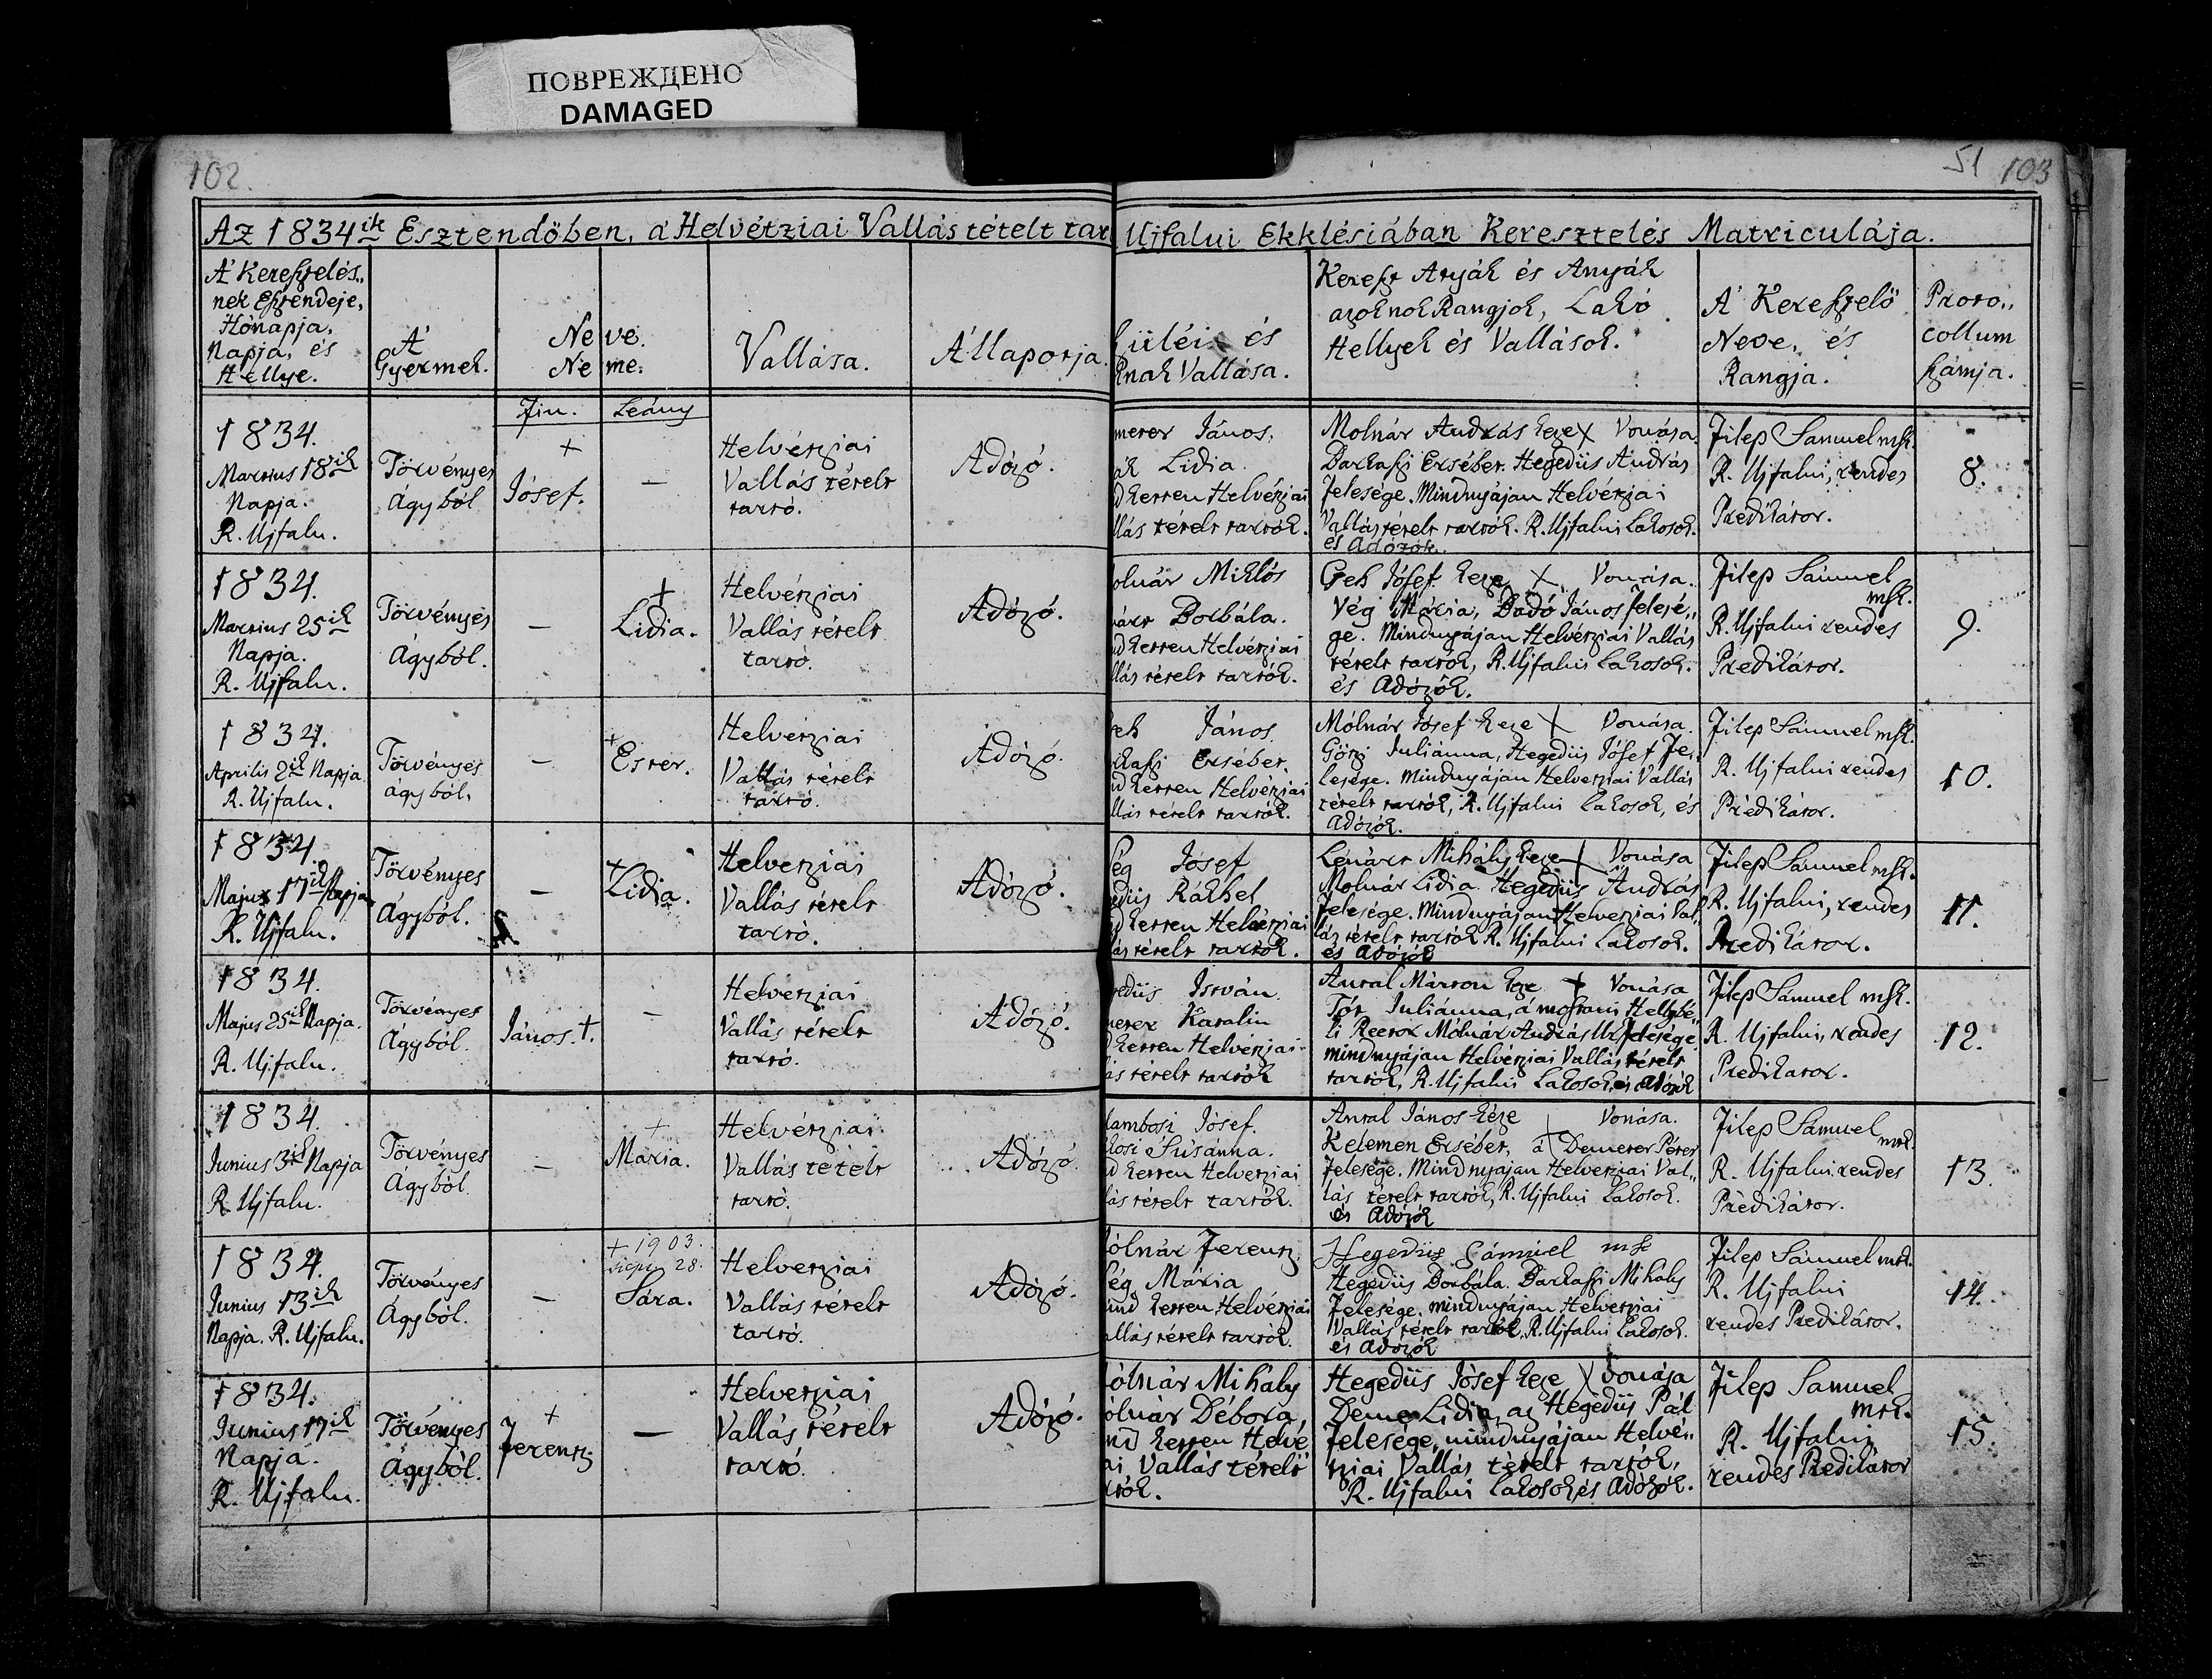 ПОВРЕЖДЕНО
DAMAGED
102.
51 103
Az 1834ik Esztendőben, a' Helvétziai Vallás tételt tar
Ujfalui Ekklésiában Keresztelés Matriculája.
A' Keresztelés„
nek Esztendeje,
Hónapja,
Napja, és
Hellye.
A'
Gyermek.
Neve.
Neme.
Fiu. Leány
Vallása.
Állapotja.
züléi és
knak Vallása.
Kereszt Atyák és Anyák
azoknok Rangjok, Lakó
Hellyek és Vallások.
A' Keresztelő
Neve, és
Rangja.
Proto„
collum
számja.
1834.
Martius 18ik
Napja.
R. Ujfalu.
Törvényes
Ágyból
+
Jósef.
–
Helvétziai
Vallás tételt
tartó.
Adózó.
meter János.
ák Lidia.
d ketten Helvétziai
llás tételt tartók.
Molnár András keze X Vonása.
Barkaszi Ersébet. Hegedüs András
felesége. Mindnyájan Helvétziai
Vallás tételt tartók. R. Ujfalui Lakosok.
és Adózók.
Filep Samuel mk.
R. Ujfalui, rendes
Predikátor.
8.
1834.
Martius 25ik
Napja.
R. Ujfalu.
Törvényes
Ágyból.
–
+
Lidia.
Helvétziai
Vallás tételt
tartó.
Adózó.
olnár Miklós
nárt Borbála.
nd ketten Helvétziai
llás tételt tartók.
Cseh Jósef keze X Vonása.
Vég Mária, Badó János felesé„
ge. Mindnyájan Helvétziai Vallás
tételt tartók, R. Ujfalui Lakosok.
és Adózók.
Filep Sámuel
mk.
R. Ujfalui rendes
Predikátor.
9.
1834.
Aprilis 2ik Napja
R. Ujfalu.
Törvényes
ágyból.
–
+
Ester.
Helvétziai
Vallás tételt
tartó.
Adózó.
seh János.
rkaszi Ersébet.
nd ketten Helvétziai
llás tételt tartók.
Mólnár Jósef keze X Vonása.
Götzi Juliánna, Hegedüs Jósef Fe„
lesége. Mindnyájan Helvetziai Vallás
tételt tartók, R. Ujfalui Lakosok, és
Adózók.
Filep Sámuel mk.
R. Ujfalui rendes
Prédikátor.
10.
1834
Majus 17ik Napja
R. Ujfalu.
Törvényes
Ágyból.
–
+
Lidia.
Helvetziai
Vallás tételt
tartó.
Adózó.
ég Jósef
edüs Rákhel
nd ketten Helvétziai
lás tételt tartók.
Lénárt Mihály keze X Vonása
Molnár Lidia. Hegedüs András
felesége. Mindnyájan Helvetziai Val„
lás tételt tartók R. Ujfalui Lakosok.
és Adózók
Filep Sámuel mk.
R. Ujfalui, rendes
Prédikátor.
11.
1834.
Majus 25ik Napja.
R. Ujfalu.
Törvényes
Ágyból.
János. +.
–
Helvetziai
Vallás tételt
tartó.
Adózó.
gedüs István.
meter Katalin
d ketten Helvétziai
ás tételt tartók
Antal Márton keze + Vonása
Tót Juliánna, a' mostani Hellybé„
li Rector Mólnár András Ur felesége.
mindnyájan Helvétziai Vallás tételt
tartók, R. Ujfalui Lakosok, és adózók
Filep Sámuel mk.
R. Ujfalui, rendes
Predikator.
12.
1834.
Junius 3ik Napja
R. Ujfalu.
Törvényes
Ágyból.
–
+
Mária.
Helvétziai
Vallás tételt
tartó.
Adózó
lambosi Jósef.
Súsánna.
d ketten Helvetziai
lás tételt tartók.
Antal János kéze + Vonása.
Kelemen Ersébet, a' Demeter Péter
felesége. Mindnyájan Helvetziai Val„
lás tételt tartók, R. Ujfalui Lakosok.
és Adózók
Filep Sámuel mk.
R. Ujfalui rendes
Prédikátor.
13.
1834.
Junius 13ik
Napja. R. Ujfalu.
Törvényes
Ágyból.
–
+ 1903.
28.
Sára.
Helvetziai
Vallás tételt
tartó.
Adózó.
ólnár Ferentz
ég Mária
ind ketten Helvétziai
allás tételt tartók.
Hegedüs Sámuel mk
Hegedüs Borbála. Barkaszi Mihály
felesége. mindnyájan Helvetziai
Vallás tételt tartók, R. Ujfalui Lakosok.
és adózók
Filep Sámuel mk.
R. Ujfalui
rendes Predikátor.
14.
1834.
Junius 17ik
Napja.
R. Ujfalu.
Törvényes
Ágyból.
+
Ferentz
–
Helvetziai
Vallás tételt
tartó.
Adózó.
ólnár Mihály
ólnár Débora,
nd ketten Helvé
ai Vallás tételt
rtók.
Hegedüs Jósef keze X vonása
Lidia, az Hegedüs Pál
felesége, mindnyájan Helvé„
tziai Vallás tételt tartók,
R. Ujfalui Lakosok és Adózók.
Filep Samuel
mk.
R. Ujfalui
rendes Predikátor
15.